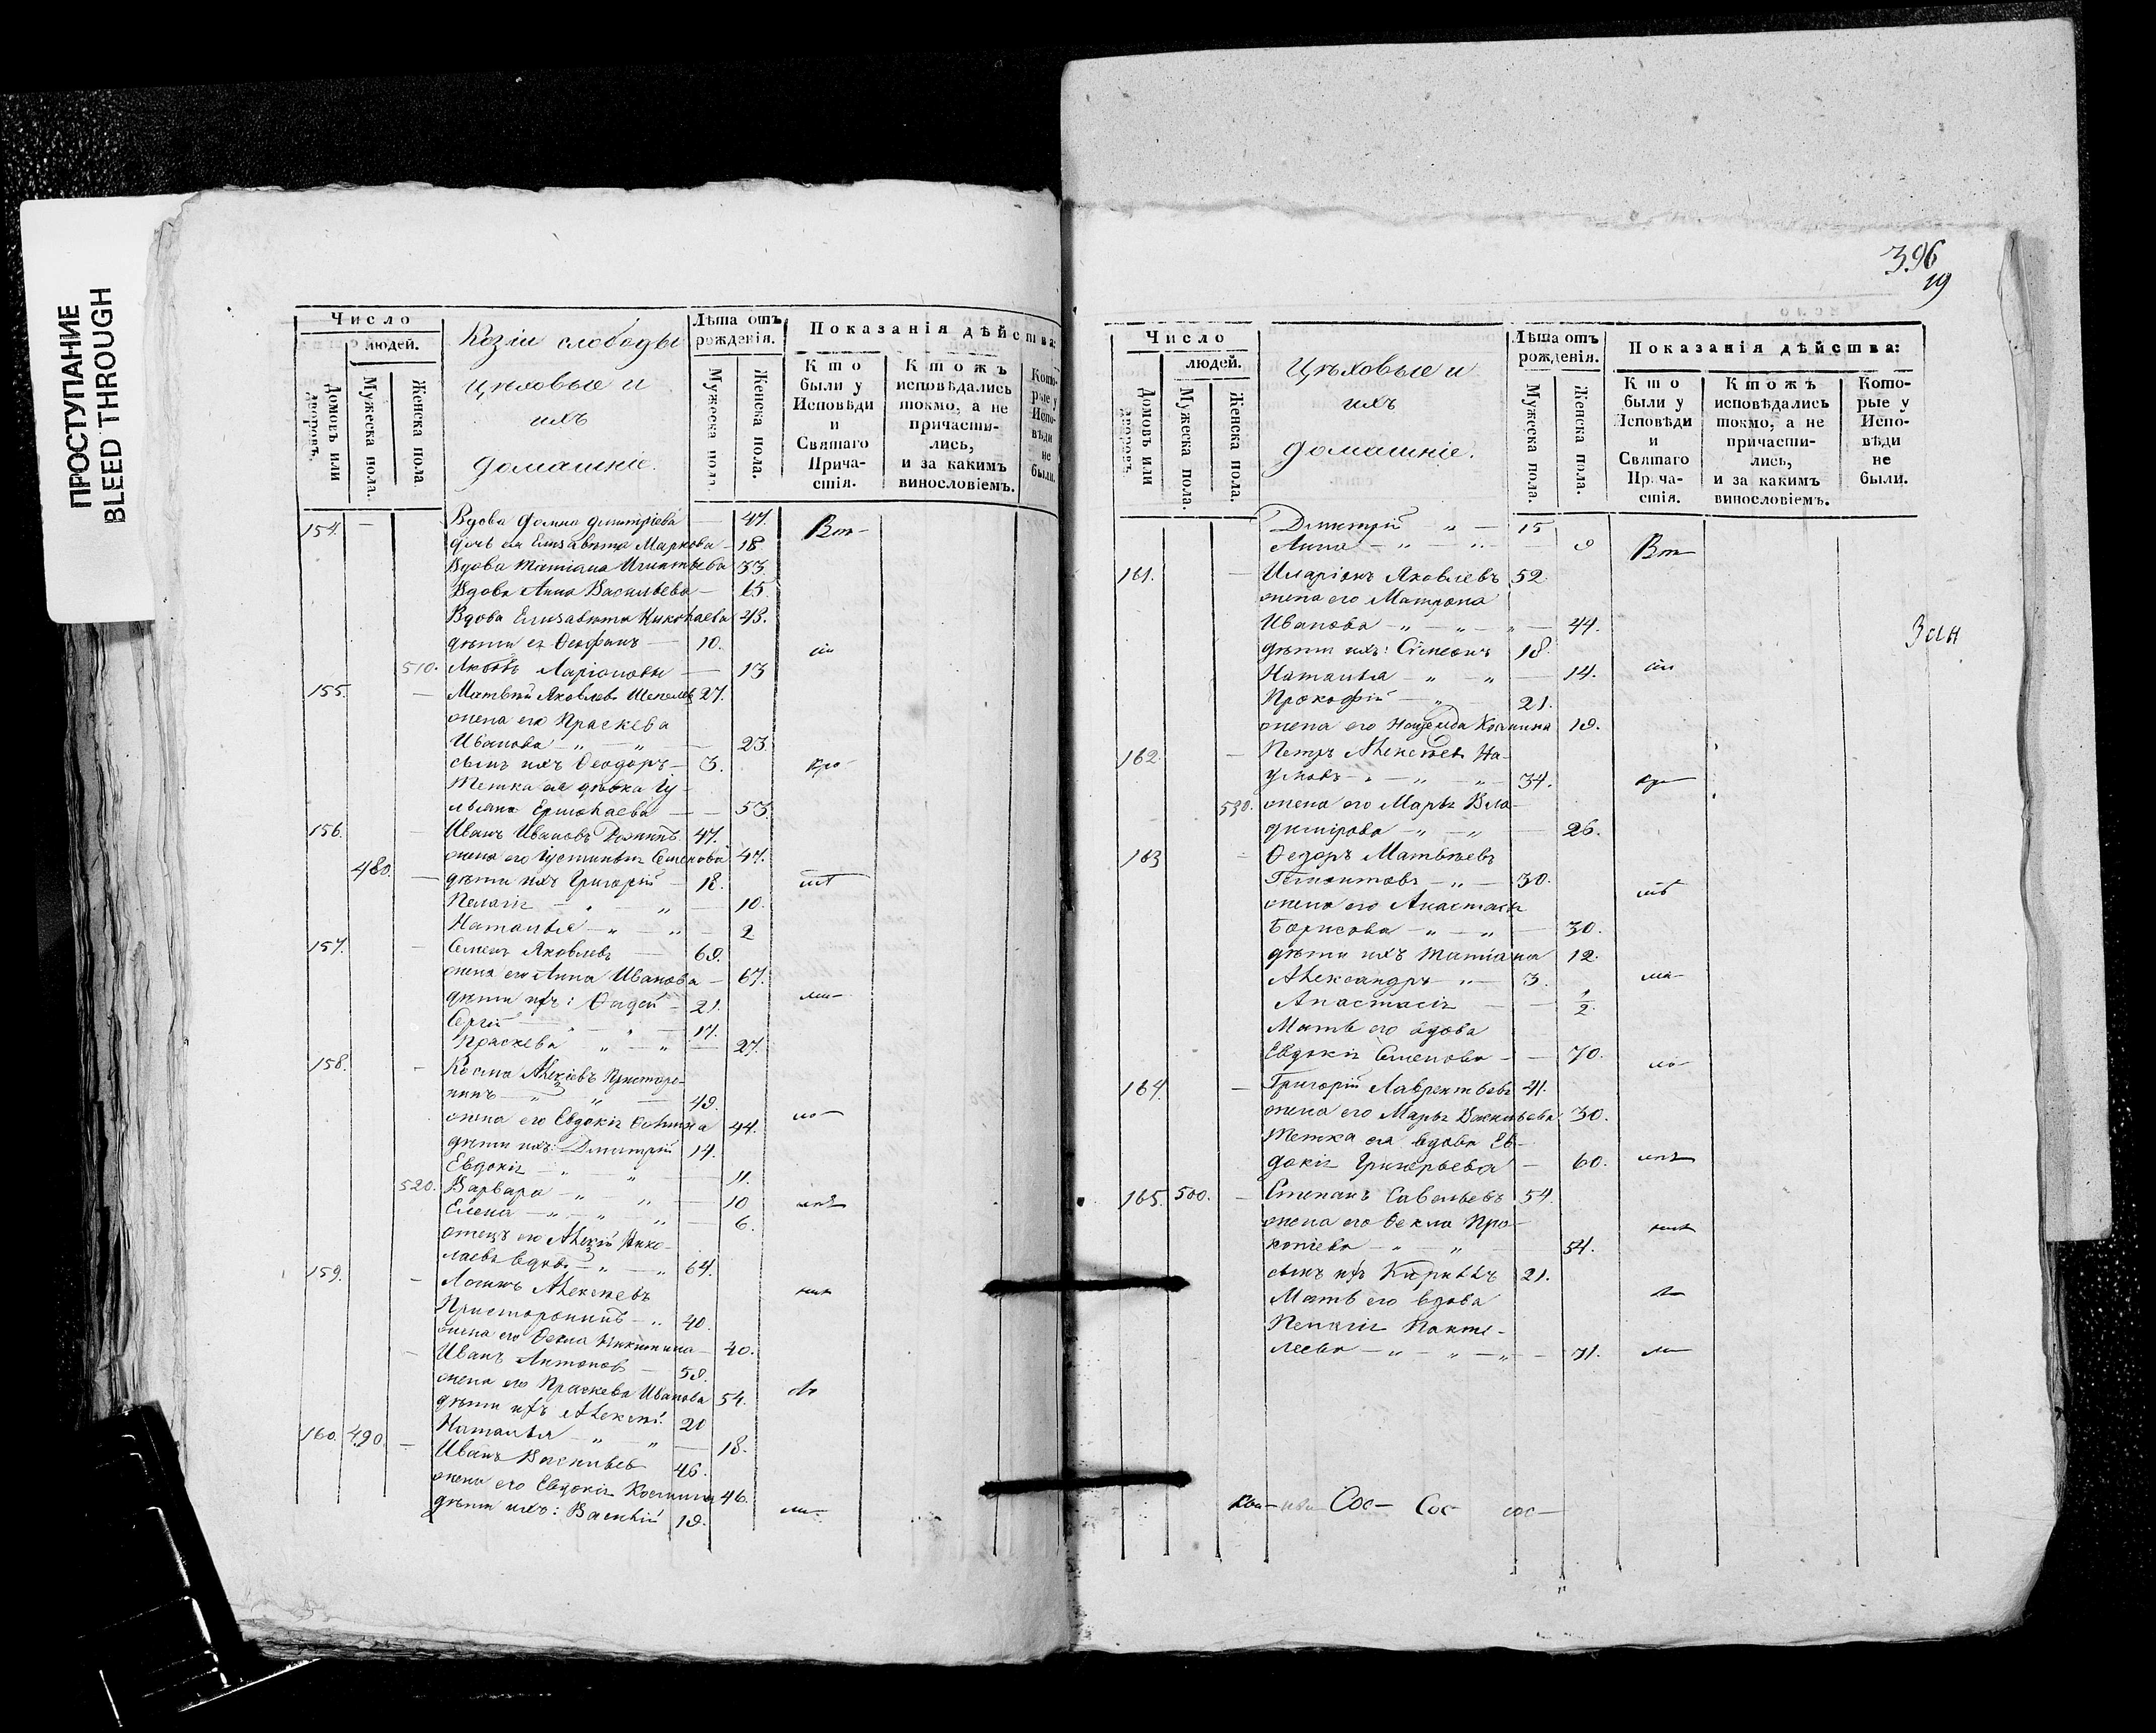 ПРОСТУПАНИЕ
BLEED THROUGH
Число
людей.
Домовъ или дворовъ.
Мужеска пола.
Женска пола
Козіи слободы
цѣховые и
ихъ
домашніе.
Лѣта отъ рожденія.
Мужеска пола.
Женска пола.
Показанія дѣйства:
Кто были у Исповѣди и Святаго Причастія.
Ктожъ исповѣдались токмо, а не причастились, и за какимъ винословіемъ.
Которые у Исповѣди не были.
154. Вдова Дмитріева 47.
дочь ея Елизавета Маркова 18.
Вдова Татіана Игнатьева 33.
Вдова Анна Васильева 65
Вдова Елизавета Николаева 43.
дѣти ея Ѳеофанъ 10.
510. Любовь Ларіоновы 13
155. Матвѣй Яковлевъ 27.
жена его Праскева
Иванова 23.
сынъ ихъ Ѳеодоръ 3.
Тетка ея дѣвка Іу-
льяна Ермолаева 53.
156. Иванъ Ивановъ 47.
жена его Іустинья Семенова 47.
480. дѣти ихъ Григорій 18.
Пелагія 10.
Наталья 2
157. Семенъ Яковлевъ 69.
жена его Анна Ивановa 67.
дѣти ихъ: 21.
Сергій 17.
Праскева 27.
158. Косма Алексіевъ Присторо-
нинъ 49.
жена его Евдокія 44.
дѣти ихъ: Димитрій 14.
Евдокія 11.
520. Варвара 10
Елена 6.
отецъ его Алексій Нико-
лаевъ вдовъ 64.
159. Логинъ Алексѣевъ
Присторонинъ 40.
жена его Ѳекла Никитина 40.
Иванъ Антоновъ 58.
жена его Праскева Иванова 54.
дѣти ихъ Алексѣй 20
Наталья 18.
160. 490. Иванъ Васильевъ 46.
жена его Евдокія Космина 46.
дѣти ихъ: Василій 19.
396
19
Число
людей.
Домовъ или дворовъ.
Мужеска пола.
Женска пола.
Цѣховые и
ихъ
домашніе.
Лѣта отъ рожденія.
Мужеска пола.
Женска пола.
Показанія дѣйства:
Кто были у Исповѣди и Святаго Причастія.
Ктожъ исповѣдались токмо, а не причастились, и за какимъ винословіемъ.
Которые у Исповѣди не были.
Димитрій 15
Анна 9
161. Иларіонъ Яковлевъ 52.
жена его Матрона
Иванова 44.
дѣти ихъ: Сімеонъ 18.
Наталья 14.
Прокофій 21.
жена его Надежда Космина 19.
162. Петръ Алексѣевъ На-
умовъ 34.
530. жена его Марья Вла-
димірова 26.
163 Ѳедоръ Матвѣевъ
30.
жена его Анастасія
Борисова 30.
дѣти ихъ Татіана 12.
Александръ 3.
Анастасія 1/2
Мать его вдова
Евдокія Семенова 70.
164. Григорій Лаврентьевъ 41.
жена его Марья Васильева 30.
Тетка ея вдова Ев-
докія Григорьева 60.
165. 500. Степанъ Савельевъ 54.
жена его Ѳекла Про-
копіева 54.
сынъ ихъ Кирилъ 21.
Мать его вдова
Пелагія Панте-
леева 71.
Сос- Сос сос-